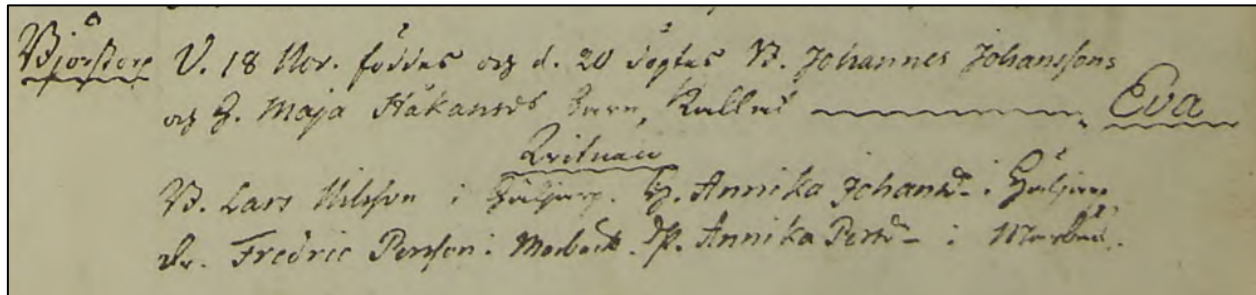 Björstorp D. 18 Nov. föddes och d. 20 döptes B. Johannes Johanssons
och H. Maja Håkansds barn, kallad Eva
Vitnen
B. Lars Nilsson i H. Annika Johansd. i
Dr. Fredric Persson i Marbäck. P. Annika Persd. i Marbäck.